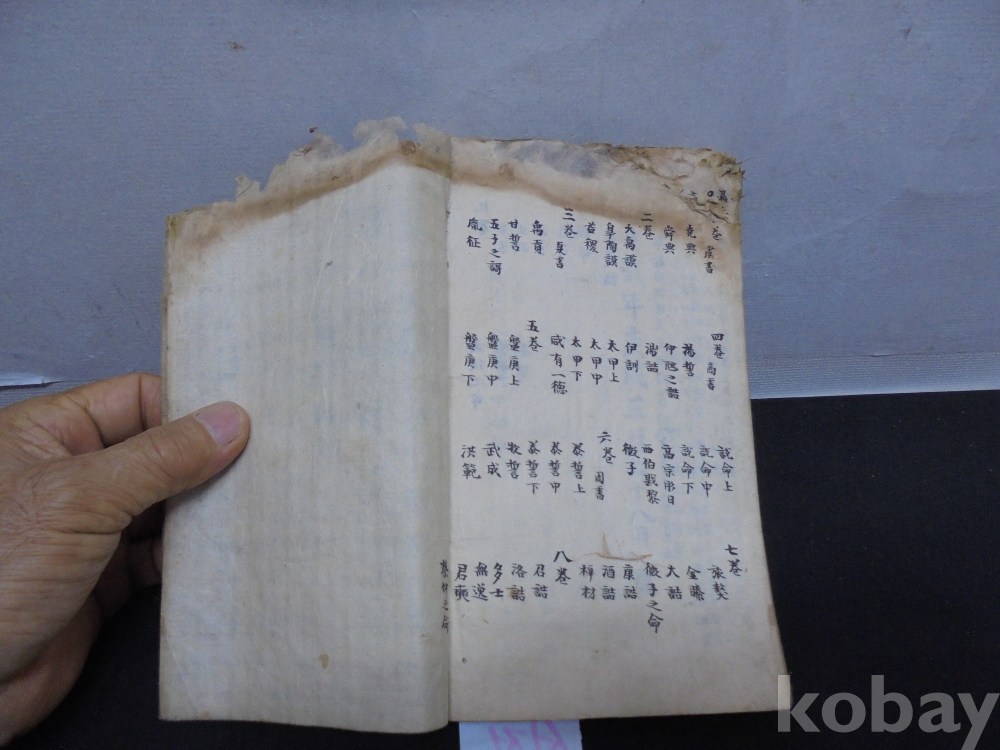 卷 虞書
堯典
舜典
二卷
大禹謨
皐陶謨
益稷
三卷 夏書
禹貢
甘誓
五子之謌
胤征
四卷 商書
湯誓
仲虺之誥
湯誥
伊訓
太甲上
太甲中
太甲下
咸有一德
五卷
盤庚上
盤庚中
盤庚下
說命上
說命中
說命下
高宗肜日
西伯戡黎
微子
六卷 周書
泰誓上
泰誓中
泰誓下
牧誓
武成
洪範
七卷
旅獒
金縢
大誥
微子之命
康誥
酒誥
梓材
八卷
召誥
洛誥
多士
無逸
君奭
蔡仲之命
kobay